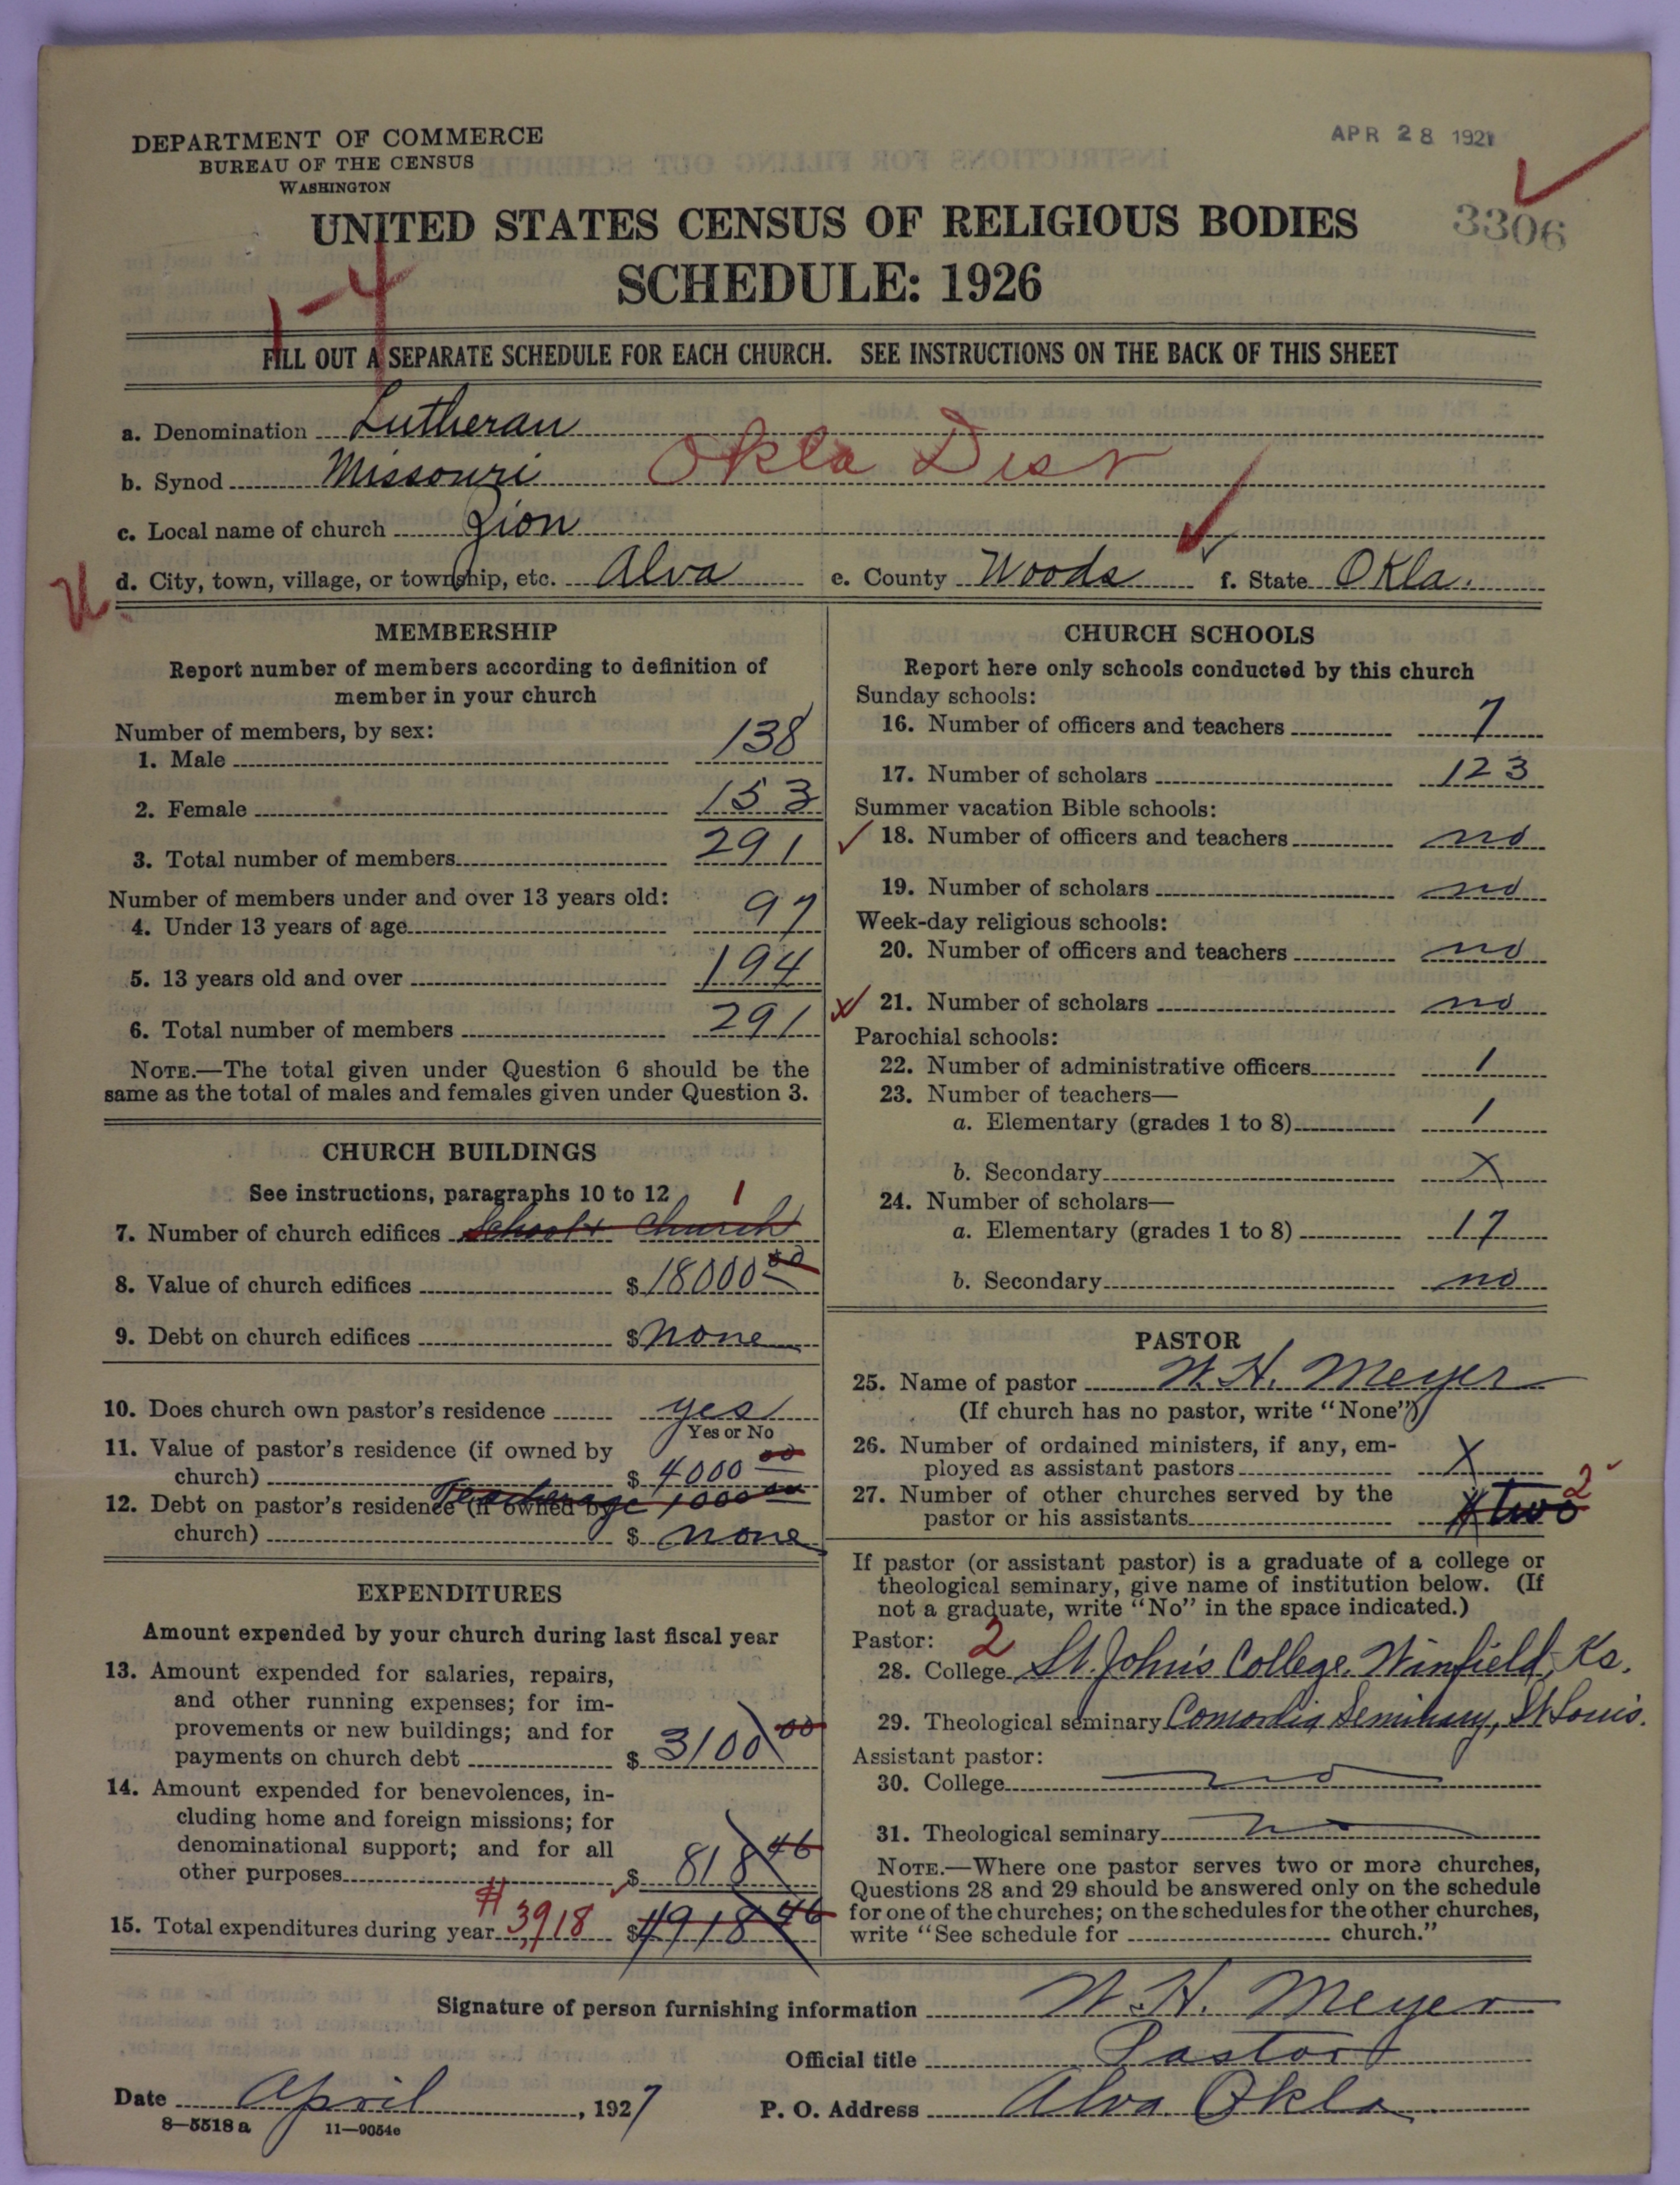 DEPARTMENT OF COMMERCE
BUREAU OF THE CENSUS
WASHINGTON
APR 28 1927
3306
UNITED STATES CENSUS OF RELIGIOUS BODIES
SCHEDULE: 1926
1-4
FILL OUT A SEPARATE SCHEDULE FOR EACH CHURCH. SEE INSTRUCTIONS ON THE BACK OF THIS SHEET
a. Denomination Lutheran
b. Synod Missouri Okla Dist
c. Local name of church Zion
d. City, town, village, or township, etc. Alva e. County Woods f. State Okla.
MEMBERSHIP
Report number of members according to definition of
member in your church
Number of members, by sex:
1. Male 138
2. Female 153
3. Total number of members 291
Number of members under and over 13 years old:
4. Under 13 years of age 97
5. 13 years old and over 194
6. Total number of members 291
NOTE.—The total given under Question 6 should be the
same as the total of males and females given under Question 3.
CHURCH BUILDINGS
See instructions, paragraphs 10 to 12
1
7. Number of church edifices School & Church
8. Value of church edifices $18000 00
9. Debt on church edifices $ none
10. Does church own pastor's residence yes
Yes or No
11. Value of pastor's residence (if owned by
church) $ 4000 00
Teacherage 1000 00
12. Debt on pastor's residence (if owned by
church) $ none
EXPENDITURES
Amount expended by your church during last fiscal year
13. Amount expended for salaries, repairs,
and other running expenses; for im-
provements or new buildings; and for
payments on church debt $ 3100 00
14. Amount expended for benevolences, in-
cluding home and foreign missions; for
denominational support; and for all
other purposes $ 818 46
15. Total expenditures during year #3918 $4918 46
CHURCH SCHOOLS
Report here only schools conducted by this church
Sunday schools:
16. Number of officers and teachers 7
17. Number of scholars 123
Summer vacation Bible schools:
18. Number of officers and teachers no
19. Number of scholars no
Week-day religious schools:
20. Number of officers and teachers no
21. Number of scholars no
Parochial schools:
22. Number of administrative officers 1
23. Number of teachers—
a. Elementary (grades 1 to 8) 1
b. Secondary X
24. Number of scholars—
a. Elementary (grades 1 to 8) 17
b. Secondary no
PASTOR
25. Name of pastor W. H. Meyer
(If church has no pastor, write "None")
26. Number of ordained ministers, if any, em-
ployed as assistant pastors X
27. Number of other churches served by the
pastor or his assistants two 2
If pastor (or assistant pastor) is a graduate of a college or
theological seminary, give name of institution below. (If
not a graduate, write "No" in the space indicated.)
Pastor: 2
28. College St. John's College, Winfield, Ks.
29. Theological seminary Concordia Seminary, St Louis.
Assistant pastor:
30. College no
31. Theological seminary no
NOTE.—Where one pastor serves two or more churches,
Questions 28 and 29 should be answered only on the schedule
for one of the churches; on the schedules for the other churches,
write "See schedule for church."
Signature of person furnishing information W. H. Meyer
Official title Pastor
Date April, 1927 P. O. Address Alva Okla
8—5518 a 11—9054e